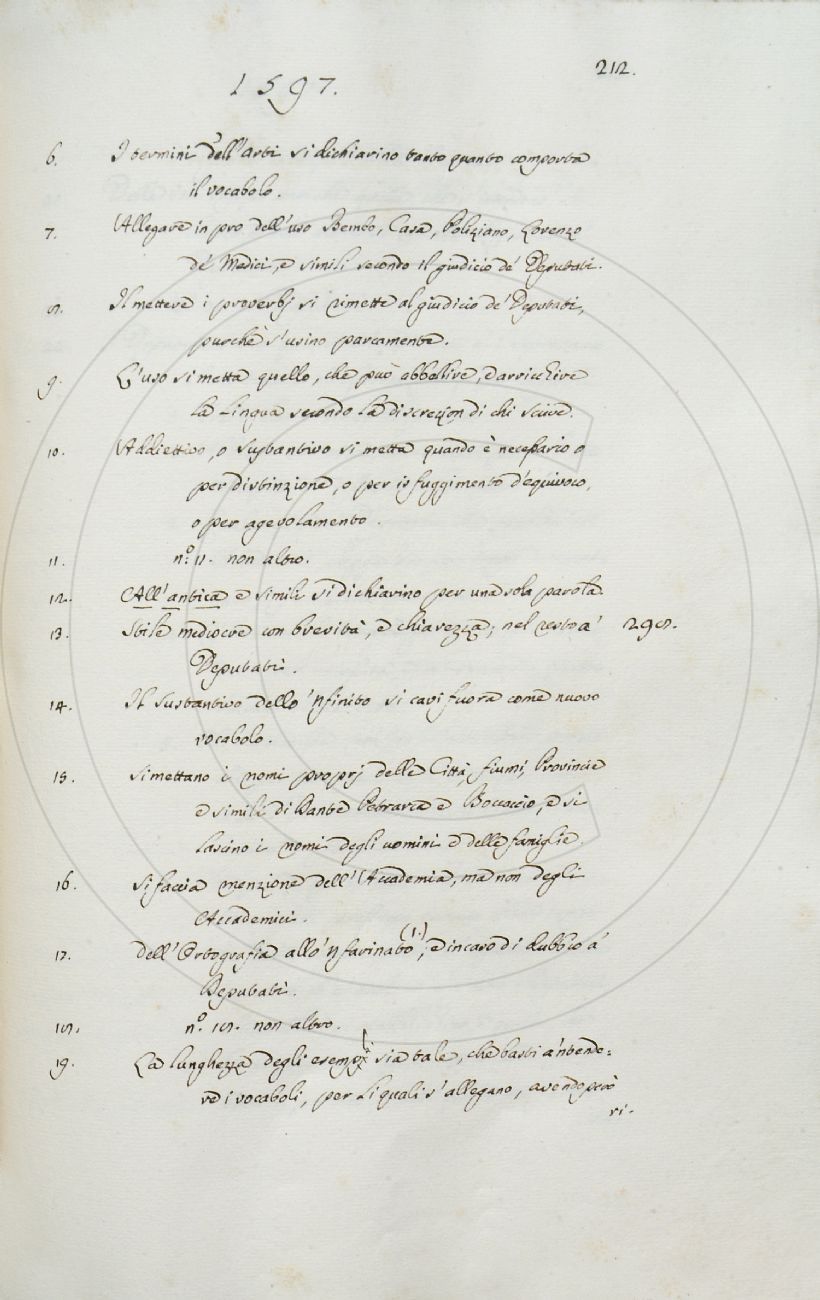 212.
1597.
6. I termini dell'arti si dichiarino tanto quanto comporta
il vocabolo.
7. Allegare in pro dell'uso Bembo, Casa, Poliziano, Lorenzo
de' Medici, e simili secondo il giudicio de' Deputati.
8. Il mettere i proverbj si rimette al giudicio de' Deputati,
purchè s'usino parcamente.
9. L'uso si metta quello, che può abbellire, ed arricchire
la Lingua secondo la discrezion di chi scrive.
10. Addiettivo, o sustantivo si metta quando è necessario o
per distinzione, o per isfuggimento d'equivoco,
o per agevolamento.
11. n.º 11. non altro.
12. All'antica e simili si dichiarino per una sola parola.
13. Stile mediocre con brevità, e chiarezza; nel resto a' 298.
Deputati.
14. Il Sustantivo dello 'nfinito si cavi fuora come nuovo
vocabolo.
15. si mettano i nomi proprj delle Città, fiumi, Provincie
e simili di Dante Petrarca e Boccaccio, e si
lascino i nomi degli uomini e delle famiglie.
16. si faccia menzione dell'Accademia, ma non degli
Accademici.
17. dell'Ortografia allo 'nfarinato (1.), e in caso di dubbio a'
Deputati.
18. n.º 18. non altro.
19. La lunghezza degli esempli sia tale, che basti a 'ntende=
re i vocaboli, per li quali s'allegano, avendo però
ri-